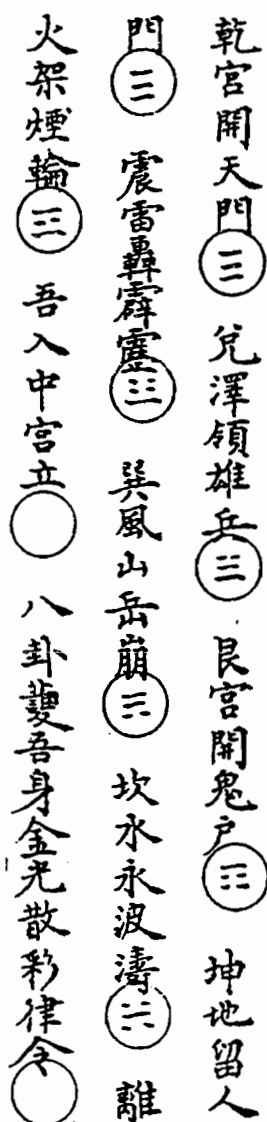 乾宮開天門☰　兌澤領雄兵　艮宮開鬼戶　坤地留人
門　震雷轟霹靂　巽風山岳崩　坎水永波濤　離
火架煙輪　吾入中宮立〇　八卦護吾身金光散彩律令〇